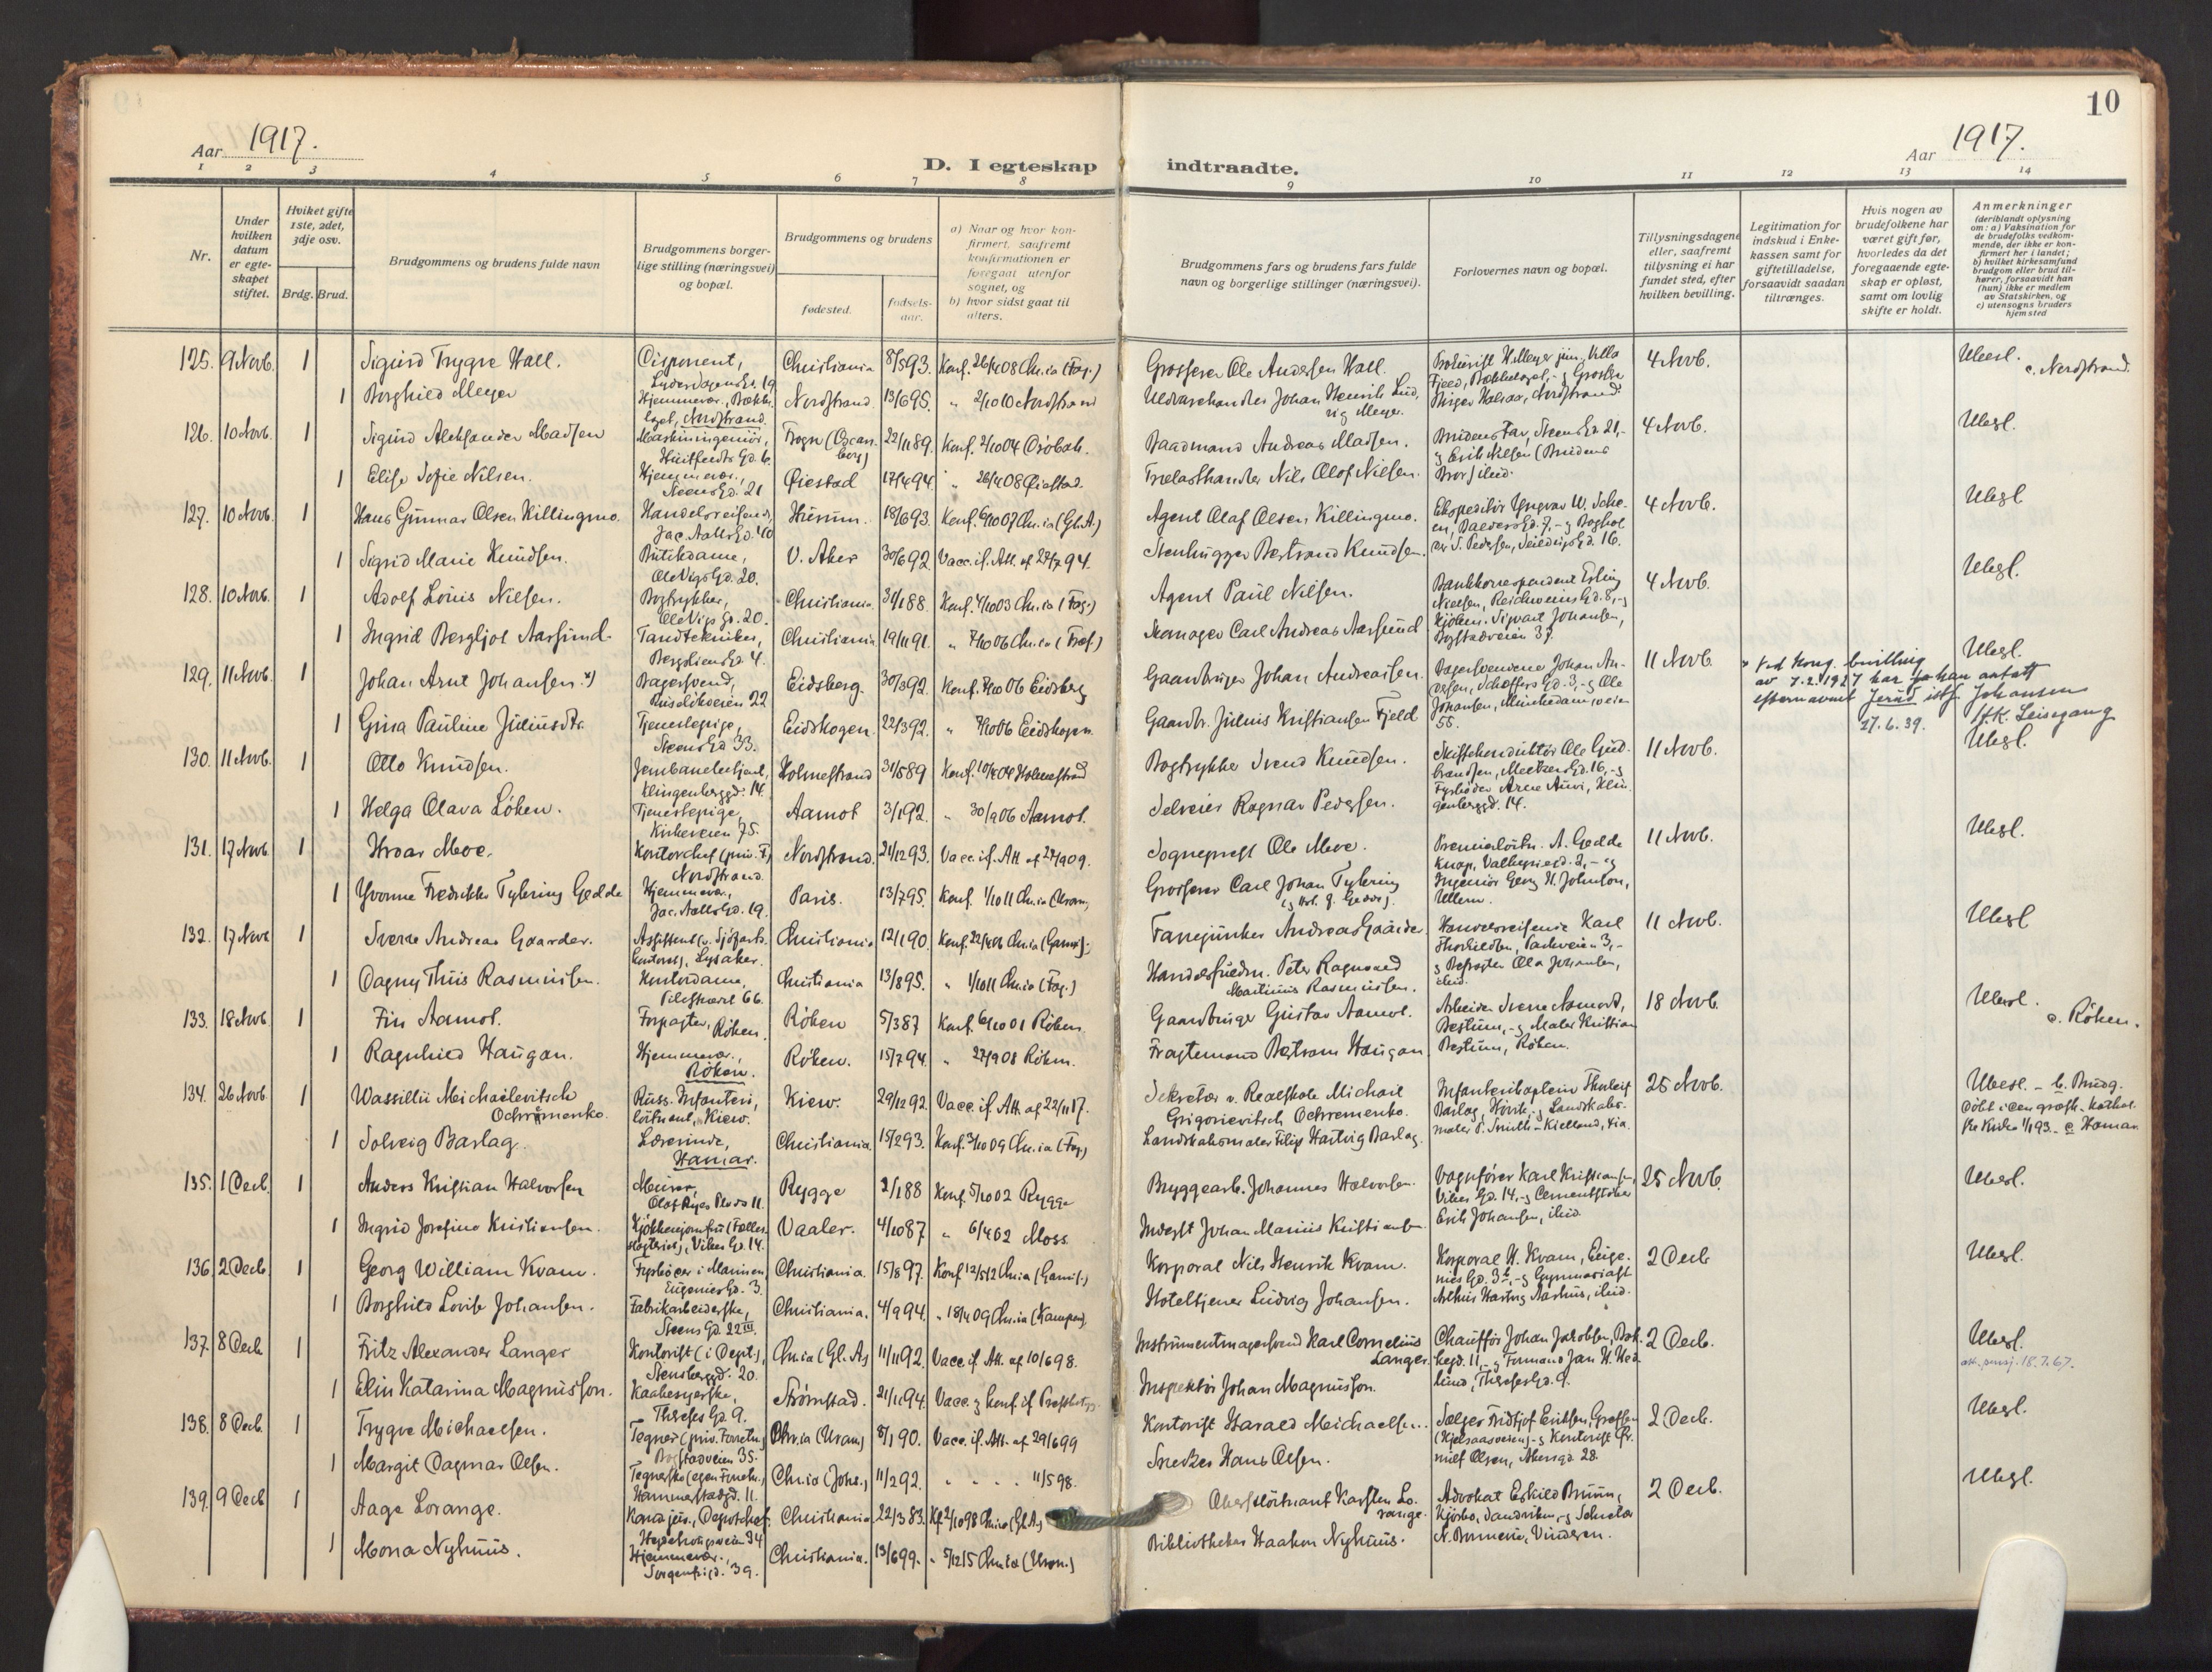 10
Aar 1917.
D. I egteskap indtraadte.
Aar 1917.
1 2 3 4 5 6 7 8 9 10 11 12 13 14
Nr.
Under hvilken datum er egteskapet stiftet.
Hviket gifte 1ste, 2det, 3dje osv.
Brdg. Brud.
Brudgommens og brudens fulde navn
Brudgommens borgerlige stilling (næringsvei) og bopæl.
Brudgommens og brudens
fødested.
fødselsaar.
a) Naar og hvor konfirmert, saafremt konfirmationen er foregaat utenfor sognet, og
b) hvor sidst gaat til alters.
Brudgommens fars og brudens fars fulde navn og borgerlige stillinger (næringsvei).
Forlovernes navn og bopæl.
Tillysningsdagene eller, saafremt tillysning ei har fundet sted, efter hvilken bevilling.
Legitimation for indskud i Enkekassen samt for giftetilladelse, forsaavidt saadan tiltrænges.
Hvis nogen av brudefolkene har været gift før, hvorledes da det foregaaende egteskap er opløst, samt om lovlig skifte er holdt.
Anmerkninger
(deriblandt oplysning om: a) Vaksination for de brudefolks vedkommende, der ikke er konfirmert her i landet; b) hvilket kirkesamfund brudgom eller brud tilhører, forsaavidt han (hun) ikke er medlem av Statskirken, og c) utensogns bruders hjemsted
125. 9 Novb. 1 Sigurd Trygve Wall. Disponent, Christiania 8/5 93. Konf. 26/4 08 Chr.ia (Fag.) Grosserer Ole Andersen Wall. 4 Novb. Ubesl. c. Nordstrand.
1 Borghild Meyer Hjemmevær., Nordstrand. Nordstrand 13/6 95. " 2/10 10 Nordstrand Uldvarehandler Johan Henrik Ludvig Meyer.
126. 10 Novb. 1 Sigurd Aleksander Madsen Maskiningeniör, Huitfeldts Gd. 6. Frogn (Oscarsborg) 22/11 89. Konf. 2/10 04 Dröbak. Baadmand Andreas Madsen. Brudens Far, Steens Gd. 21, - og Erik Nilsen (Brudens Bror) ibid. 4 Novb. Ubesl.
1 Elise Sofie Nilsen. Hjemmevær., Steens Gd. 21 Øiestad 17/4 94. " 26/4 08 Øiestad. Trelasthandler Nils Olof Nilsen.
127. 10 Novb. 1 Hans Gunnar Olsen Killingmo. Handelsreisende, Jac. Aalls Gd. 40 Hurum. 18/6 93. Konf. 6/10 07 Chr.ia (Gl.A.) Agent Olaf Olsen Killingmo. 4 Novb. Ubesl
1 Sigrid Marie Knudsen. Butikdame, Ole Vigs Gd. 20. V. Aker 30/6 92. Vacc. if. Att. af 27/7 94. Stenhugger Bertrand Knudsen.
128. 10 Novb. 1 Adolf Louis Nilsen. Bogtrykker, Ole Vigs Gd. 20. Christiania. 31/1 88. Konf. 4/10 03 Chr.ia (Fag.) Agent Paul Nilsen. Bankkorrespondent Erling Nielsen, Reichweins Gd. 8, - og Kjöbm. Sigvart Johansen, Bogstadveien 37. 4 Novb. Ubesl.
1 Ingrid Bergljot Aarsund. Tandtekniker, Bergsliens Gd. 4. Christiania 19/11 91. " 7/10 06 Chr.ia (Tref.) Manager Carl Andreas Aarsund
129. 11 Novb. 1 Johan Arnt Johansen. *) Bagersvend, Ruselökveien 22 Eidsberg. 30/3 92. Konf. 7/10 06 Eidsberg Gaardbruger Johan Andreassen. Bagersvendene Johan Andersen, Schøffers Gd. 3, - og Ole Johansen, Munkedamsveien 55. 11 Novb. Ubesl.
* Ved kong. bevilling av 7.2.1927 har Johan antatt efternavnet Jerud istf. Johansen
17.6.39. Leisegang
1 Grina Pauline Juliusdtr. Tjenestepige, Steens Gd 33. Eidskogen. 22/3 92. " 7/10 06 Eidskogen. Gaardbr. Julius Kristiansen Fjeld
130. 11 Novb. 1 Otto Knudsen. Jernbanebetjent, Klingenberggd. 14. Holmestrand 31/5 89 Konf. 10/4 04 Holmestrand Bogtrykker Svend Knudsen. Skiftekonduktör Ole Gudbrandsen, Meltzers Gd. 16, - og Fyrböder Arne Auvi, Klingenberggd. 14. 11 Novb. Ubesl.
1 Helga Olava Löken. Tjenestepige, Kirkeveien 75. Aamot 3/1 92. " 30/9 06 Aamot. Selveier Ragnar Pedersen.
131. 17 Novb. 1 Hroar Moe. Kontorchef (priv. F.) Nordstrand. Nordstrand. 21/12 93. Vacc. if. Att. af 27/9 09. Sogneprest Ole Moe. Premierlöitn. A. Gedde Knap, - og Ingeniör Georg H. Johnson, Ullern. 11 Novb. Ubesl.
1 Yvonne Fredrikke Tybring Gedde Hjemmevær., Jac. Aalls Gd. 19. Paris. 13/7 95. Konf. 1/10 11 Chr.ia (Uran.) Grosserer Carl Johan Tybring
132. 17 Novb 1 Sverre Andreas Gaarder. Assistent (v. Sjöfartskontoret), Lysaker. Christiania 12/1 90. Konf. 22/4 06 Chr.ia (Gamleb.) Fanejunker Andreas Gaarder. Handelsreisende Karl Thorkildsen, Parkveien 3, - og Befragter Ola Johansen, ibid. 11 Novb. Ubesl
1 Dagny Thiis Rasmussen. Kontordame, Pilestrædet 66. Christiania 13/8 95. " 1/10 11 Chr.ia (Fag.) Handelsfuldm. Peter Ragnvald Martinius Rasmussen.
133. 18 Novb. 1 Fin Aamot. Forpagter, Röken. Röken 5/3 87 Konf. 6/10 01 Röken. Gaardbruger Gustav Aamot. Arbeider Sverre Aamodt, Bestum, - og Maler Kristian Bestum, Röken. 18 Novb. Ubesl. c. Röken.
1 Ragnhild Haugan. Hjemmevær., Röken. Röken. 15/7 94. " 27/9 08 Röken. Fragtemand Bertram Haugan
134. 26 Novb. 1 Wassillii Michaelevitsch Ochrimenko. Russ. Infanterilöitnant, Kiew. Kiew. 29/12 92. Vacc. if. Att. af 22/11 17. Sekretær v. Realskole Michail Grigorievitsch Ochremenko. Infanterikaptein Thorleif Barlag, Hövik, - og Landskabsmaler P. Smith-Kielland, Kia. 25 Novb. Ubesl. - b. Brudg. döbt i den græsk-kathol. ske Kirke 1/1 93. - c. Hamar.
1 Solveig Barlag. Lærerinde, Hamar. Christiania. 15/2 93. Konf. 3/10 09 Chr.ia (Fag.) Landskabsmaler Filip Hartvig Barlag.
135. 1 Decb. 1 Anders Kristian Halvorsen Murer, Olaf Ryes Plads 11. Rygge 2/1 88 Konf. 5/10 02 Rygge Bryggearb. Johannes Halvorsen. Vognförer Karl Kristiansen, Vibes Gd. 14, - og Cementstöber Erik Johansen, ibid. 25 Novb. Ubesl.
1 Ingrid Josefine Kristiansen. Kjökkenjomfru (Fællesslagteriet), Vibes Gd. 14. Vaaler. 4/10 87 " 6/4 62 Moss. Inderst Johan Marius Kristiansen.
136. 2 Decb. 1 Georg William Kvam. Fyrböder i Marinen, Eugenies Gd. 3. Christiania. 15/8 97. Konf. 12/5 12 Chr.ia (Gamleb.) Korporal Nils Henrik Kvam. Korporal H. Kvam, Eugenies Gd. 3b, - og Gymnasiast Arthur Hartvig Aarhus, ibid. 2 Decb Ubesl.
1 Borghild Lovise Johansen. Fabrikarbeiderske, Steens Gd. 22 III. Christiania. 4/9 94. " 18/4 09 Chr.ia (Kampen). Hoteltjener Ludvig Johansen.
137. 8 Decb 1 Fritz Alexander Langer Kontorist (i Dept.), Stensberggd. 20. Chr.ia (Gl. A.) 11/11 92. Vacc. if. Att. af 10/6 98. Instrumentmagersvend Karl Cornelius Langer. Chauffør Johan Jakobsen, Bakkegd. 11, - og Formand Jan H. Hedlund, Thereses Gd. 9. 2 Decb. Ubesl.
att. pensj. 18.7.67.
1 Elin Katarina Magnusson. Kaabesyerske, Thereses Gd. 9. Strömstad. 21/11 94. Vacc. og konf. if Præstbetyg. Inspektör Johan Magnusson.
138. 8 Decb. 1 Trygve Michaelsen. Tegner (priv. Forretn.) Bogstadveien 35. Chr.ia (Uran.) 8/1 90. Vacc. if. Att. af 29/6 99 Kontorist Harald Michaelsen. Sælger Fridtjof Eriksen, Grefsen (Kjelsaasveien) - og Kontorist Olsen, Akersgd. 28. 2 Decb. Ubesl.
1 Margit Dagmar Olsen. Tegnerske (egen Forretn.) Hammerstadgd. 11. Chr.ia (Johs.) 11/2 92. " " " " 11/5 98. Snedker Hans Olsen.
139. 9 Decb 1 Aage Lorange. Kand. jur., Depotchef, Hegdehaugsveien 34 Christiania 22/3 83. Kf. 2/10 98 Chr.ia (Gl.A.) Oberstlöitnant Karsten Lorange. Advokat Eskild Bruun, Kjörbo, Sandviken, - og Sekretær Vinderen. 2 Decb. Ubesl.
1 Mona Nyhuus. Hjemmevær., Sorgenfrigd. 39. Christiania. 13/6 99. " 5/12 15 Chr.ia (Uran.) Bibliothekar Haakon Nyhuus.